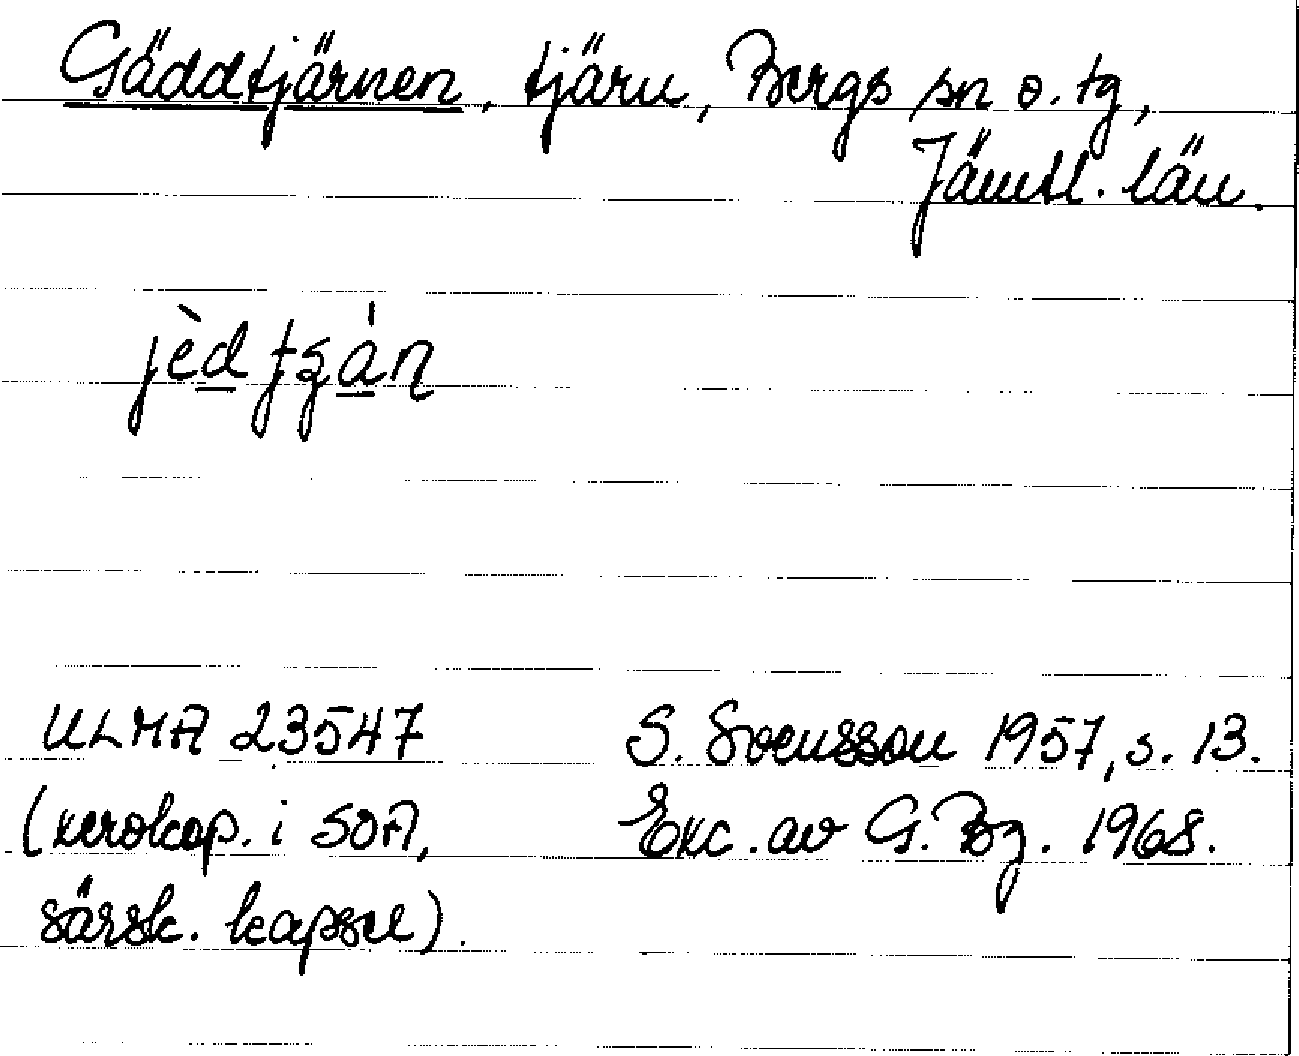 Gäddtjärnen, tjärn, Bergs sn o. tg,
Jämtl. län.
jèd tʒán
ULMA 23547 S. Svensson 1957, s. 13.
(xerokop. i SOA, Exc. av G. Bg. 1968.
särsk. kapsel).